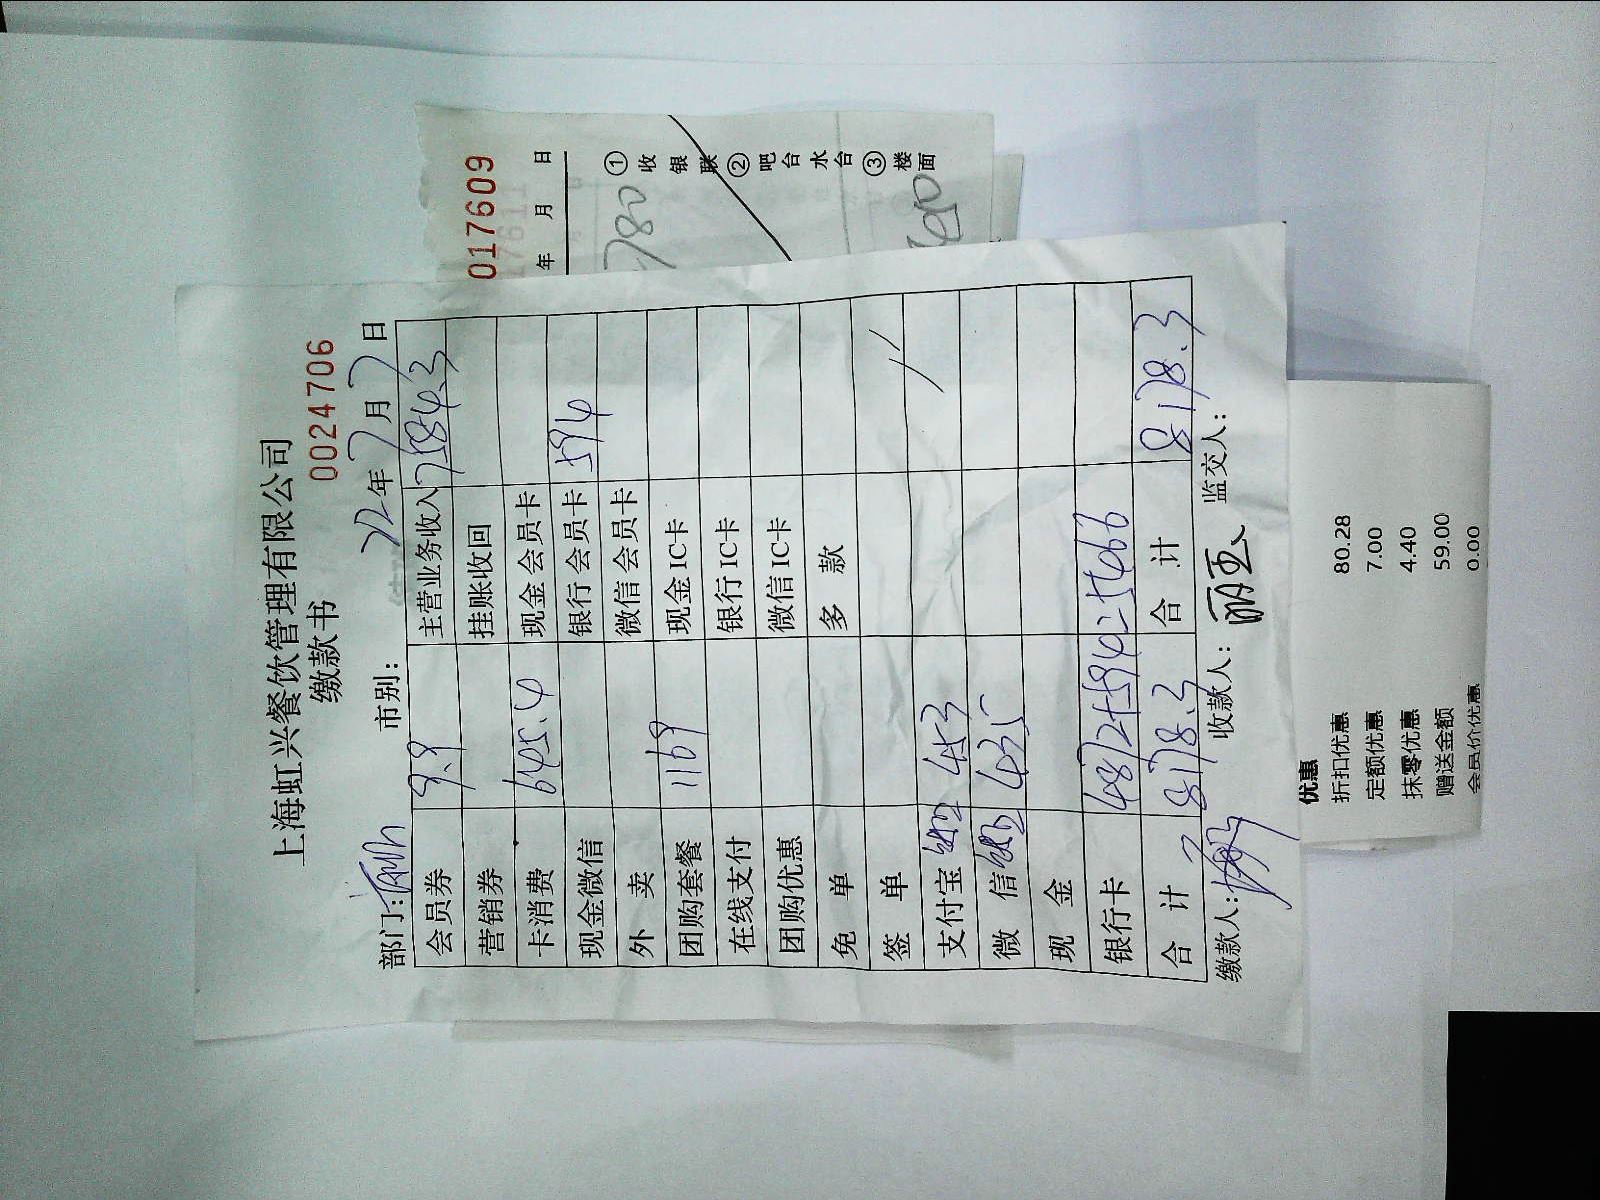 上海虹兴餐饮管理有限公司
缴款书
0024706
部门: 市别: 22年7月7日
会员券 9.9 主营业务收入 7584.3
营销券 挂账收回
卡消费 645.4 现金会员卡
现金微信 银行会员卡 594
外卖 微信会员卡
团购套餐 1169 现金IC卡
在线支付 银行IC卡
团购优惠 微信IC卡
免单 多款
签单
支付宝 453
微信 435
现金
银行卡 4872+594=5466
合计 8178.3 合计 8178.3
缴款人: 收款人: 丽玉 监交人:
017609
年 月 日
780
①收银联②吧台水台③楼面
优惠
折扣优惠 80.28
定额优惠 7.00
抹零优惠 4.40
赠送金额 59.00
会员价优惠 0.00